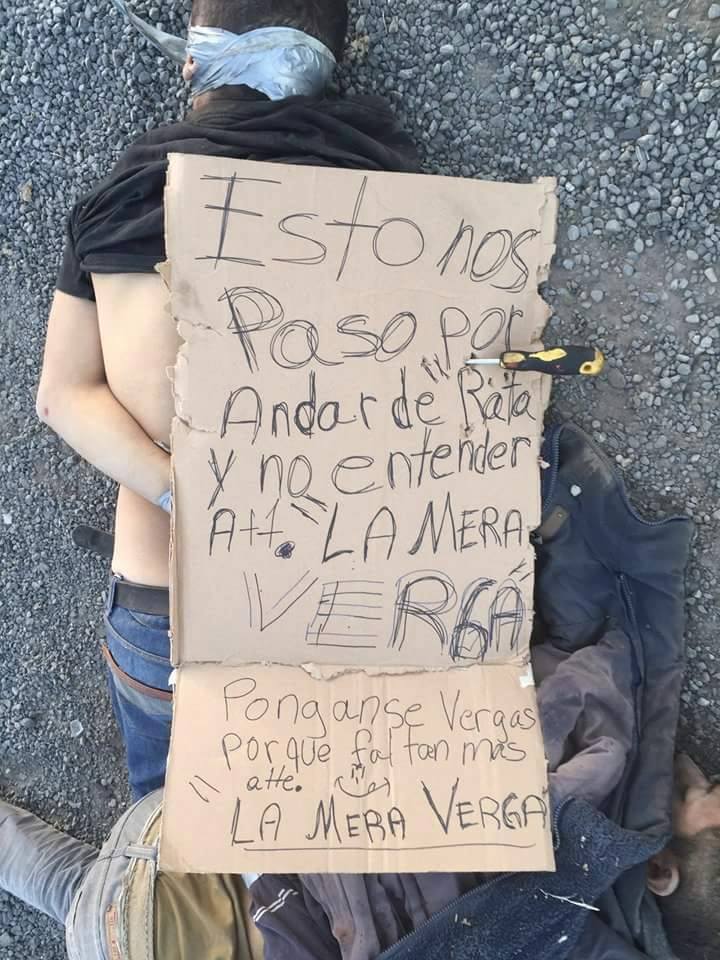 Esto nos
Paso por
Andar de "Rata
y no entender
Att. "LA MERA
VERGA"
Ponganse Vergas
Porque faltan mas
atte.
"LA MERA VERGA